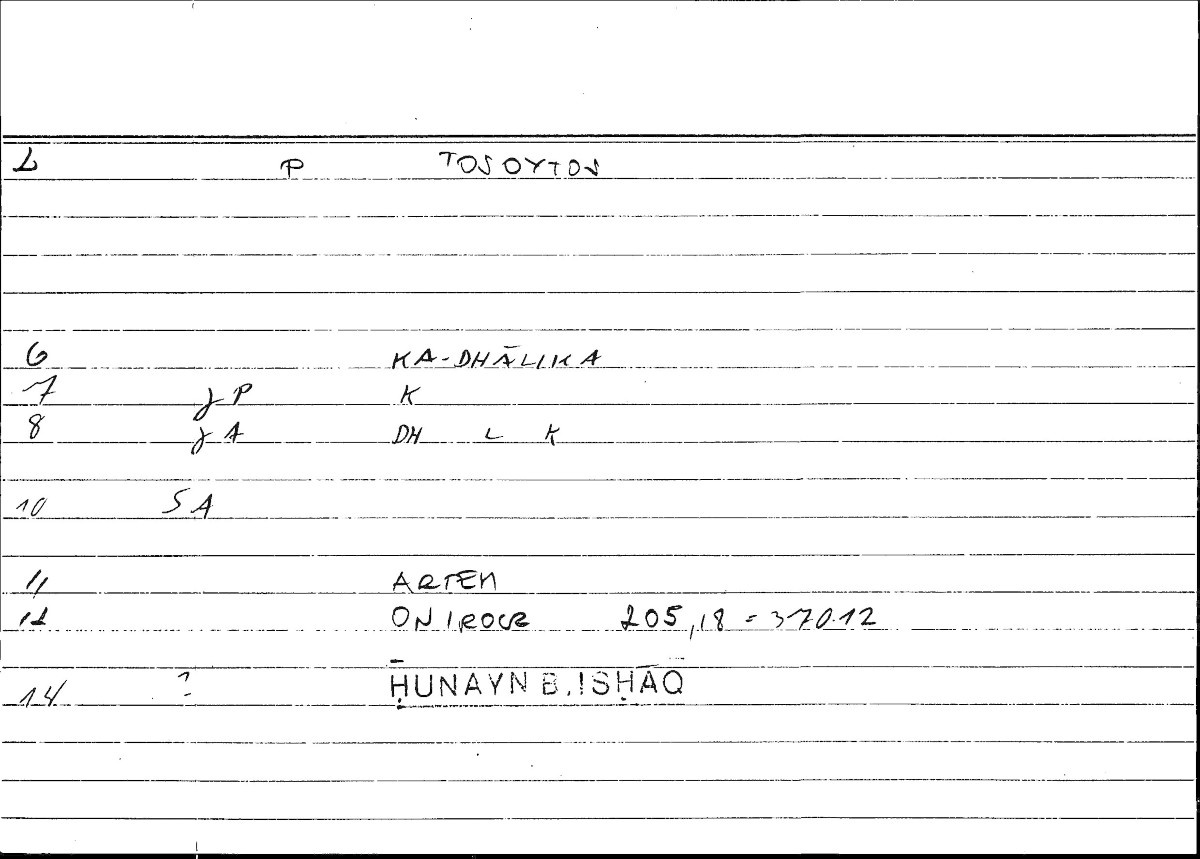 2 P TOSOYTOS
6 KA-DHĀLIKA
7 J P K
8 J A DH L K
10 S A
11 ARTEM
12 ONIROCR 205,18 = 370.12
14 ? ḤUNAYN B. ISḤĀQ